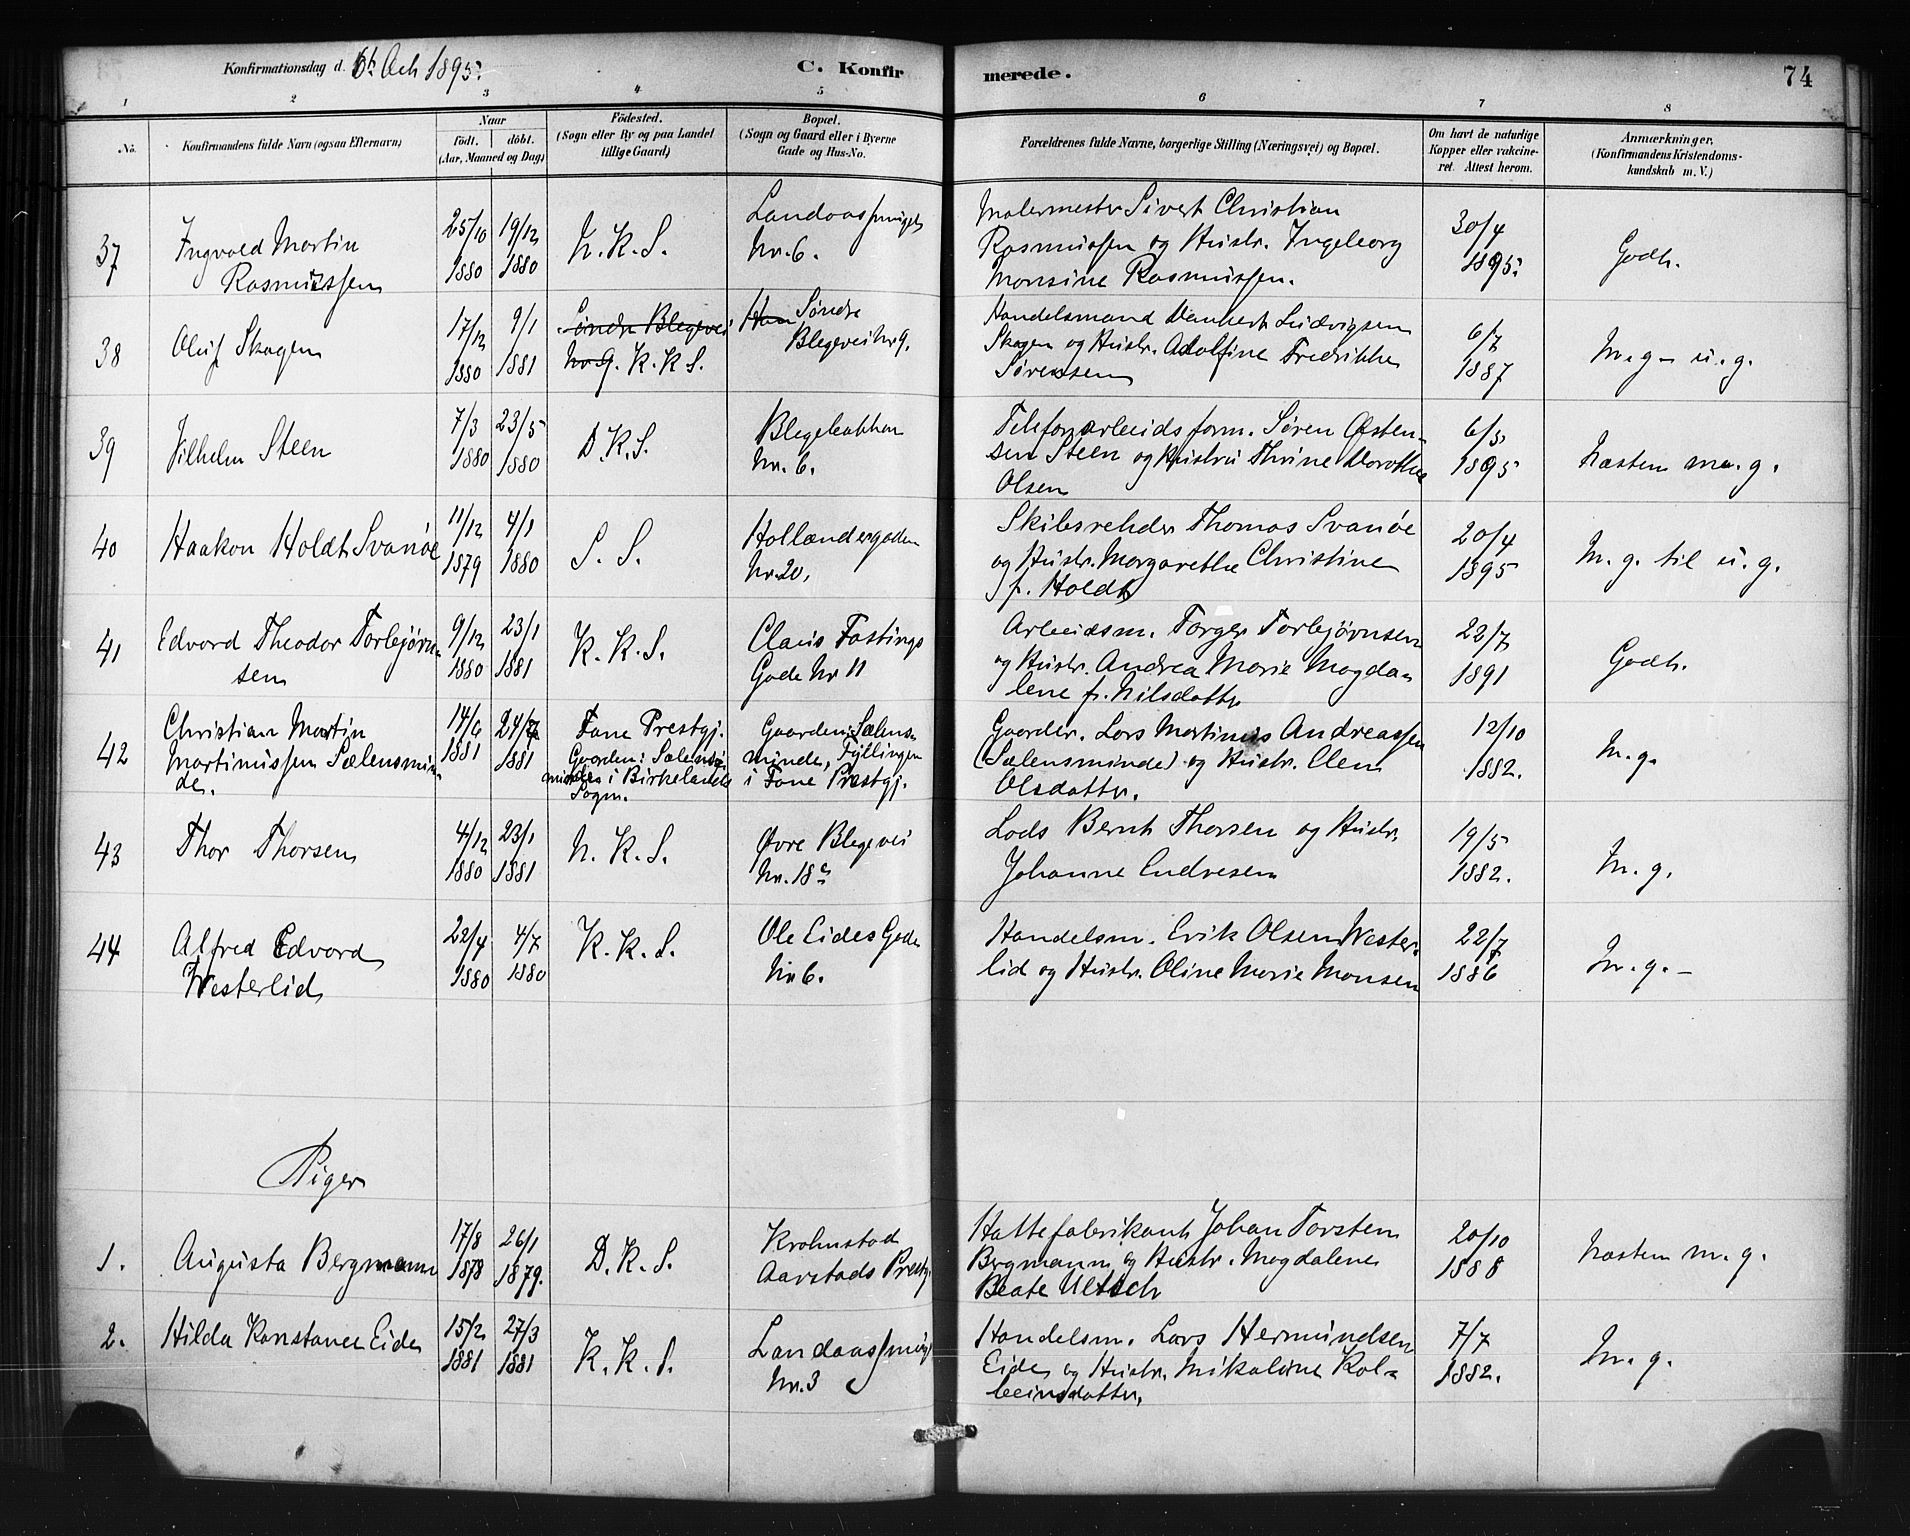 Konfirmationsdag d. 6te Oct 1895.
C. Konfirmerede.
74
1 2 3 4 5 6 7 8
No. Konfirmandens fulde Navn (ogsaa Efternavn)
Naar født. døbt. (Aar, Maaned og Dag)
Fødested. (Sogn eller By og paa Landet tillige Gaard)
Bopæl. (Sogn og Gaard eller i Byerne Gade og Hus-No.
Forældrenes fulde Navne, borgerlige Stilling (Næringsvei) og Bopæl.
Om havt de naturlige Kopper eller vakcineret. Attest herom.
Anmærkninger, (Konfirmandens Kristendomskundskab m. V.)
37
Ingvald Martin
Rasmussen
25/10 1880
19/12 1880
N. K. S.
Landaassmuget
Nr. 6.
Malermester Sivert Christian
Rasmussen og Hustr. Ingeborg
Monsine Rasmussen.
30/4
1895.
Godt.
38
Oluf Skagen
17/12 1880
9/1 1881
Søndre Blegevei
No 9. K. K. S.
Søndre
Blegevei Nr 9.
Handelsmand Dankert Ludvigsen
Skagen og Hustr. Adolfine Fredrikke
Sørensen
6/7
1887
M. g - u. g.
39
Vilhelm Steen
7/3 1880
23/5 1880
D. K. S.
Blegebakken
Nr. 6.
Telefonarbeidsform. Søren Østen-
sen Steen og Hustru Thrine Dorothea
Olsen
6/5
1895
Næsten m. g.
40
Haakon Holdt Svanøe
11/12 1879
4/1 1880
S. S.
Hollændergaden
Nr. 20.
Skibsreder Thomas Svanøe
og Hustr. Margarethe Christine
f. Holdt
20/4
1895
M. g. til u. g.
41
Edvard Theodor Torbjørn-
sen
9/12 1880
23/1 1881
K. K. S.
Claus Fastings
Gade Nr 11
Arbeidsm. Torger Torbjørnsen
og Hustr. Andrea Marie Magda-
lene f. Nilsdatter
22/7
1891
Godt.
42
Christian Martin
Martinussen Sælensmin-
de.
14/6 1881
24/7 1881
Fane Prestgj.
Gaarden: Sælens-
mindes i Birkelands
Sogn.
Gaarden: Sælens-
minde, Fyllingen
i Fane Prestgj.
Gaardbr. Lars Martinus Andreassen
(Sælensminde) og Hustr. Elen
Olsdatter.
12/10
1882.
M. g.
43
Thor Thorsen
4/12 1880
23/1 1881
N. K. S.
Øvre Blegevei
Nr. 18 c
Lods Bernt Thorsen og Hustr.
Johanne Endresen
19/5
1882.
M. g.
44
Alfred Edvard
Westerlid
22/4 1880
4/7 1880
K. K. S.
Ole Eides Gade
Nr 6.
Handelsm. Erik Olsen Wester-
lid og Hustr. Oline Marie Monsen
22/7
1886
M. g. -
Piger
1.
Augusta Bergmann
17/8 1878
26/1 1879.
D. K. S.
Krohnstad
Aarstads Prestgj.
Hattefabrikant Johan Torsten
Bergmann og Hustr. Magdalene
Beate Ultsch
20/10
1888
Næsten m. g.
2.
Hilda Konstance Eide
15/2 1881
27/3 1881
K. K. S.
Landaassmuget
Nr. 3
Handelsm. Lars Hermundsen
Eide og Hustr. Mikaline Kol-
beinsdatter.
7/7
1882.
M. g.